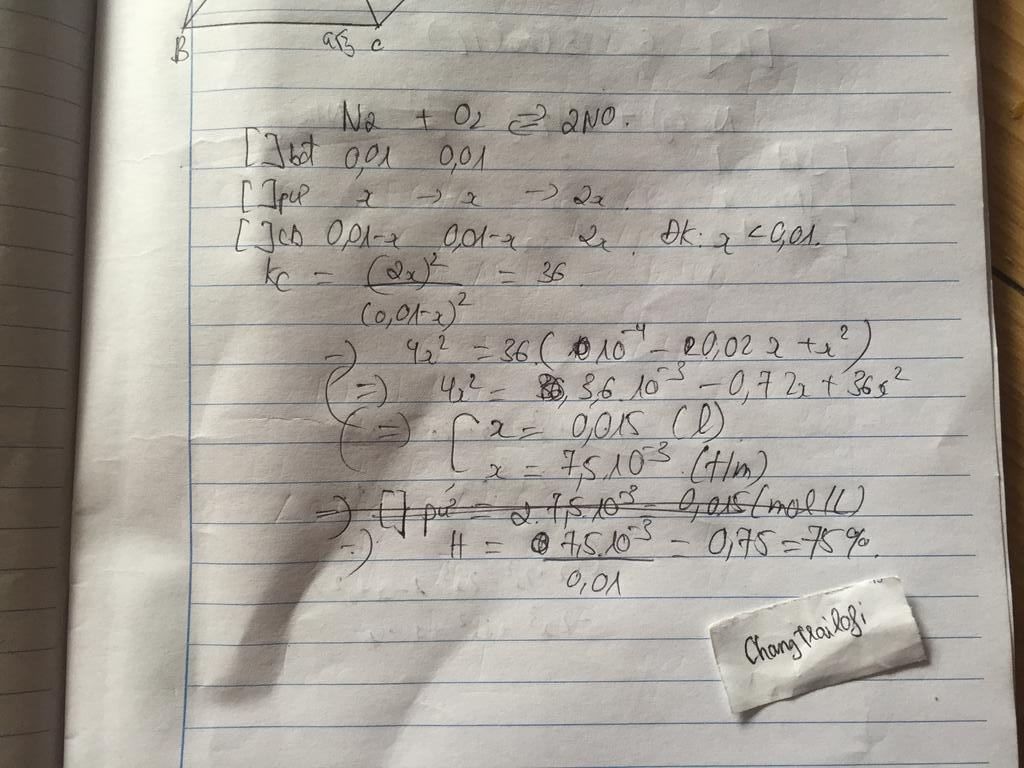 B a√3 C
N2 + O2 ⇌ 2NO.
[ ]bđ 0,01 0,01
[ ]pứ x -> x -> 2x.
[ ]CB 0,01-x 0,01-x 2x. ĐK: x < 0,01.
Kc = (2x)² / (0,01-x)² = 36
=) 4x² = 36 (10⁻⁴ - 0,02x + x²)
(=) 4x² = 3,6.10⁻³ - 0,72x + 36x²
(=) [ x = 0,015 (l)
x = 7,5.10⁻³ (t/m)
=) [ ] pứ = 2.7,5.10⁻³ = 0,015 (mol/L)
=) H = 7,5.10⁻³ / 0,01 = 0,75 = 75%.
Changtrailofi